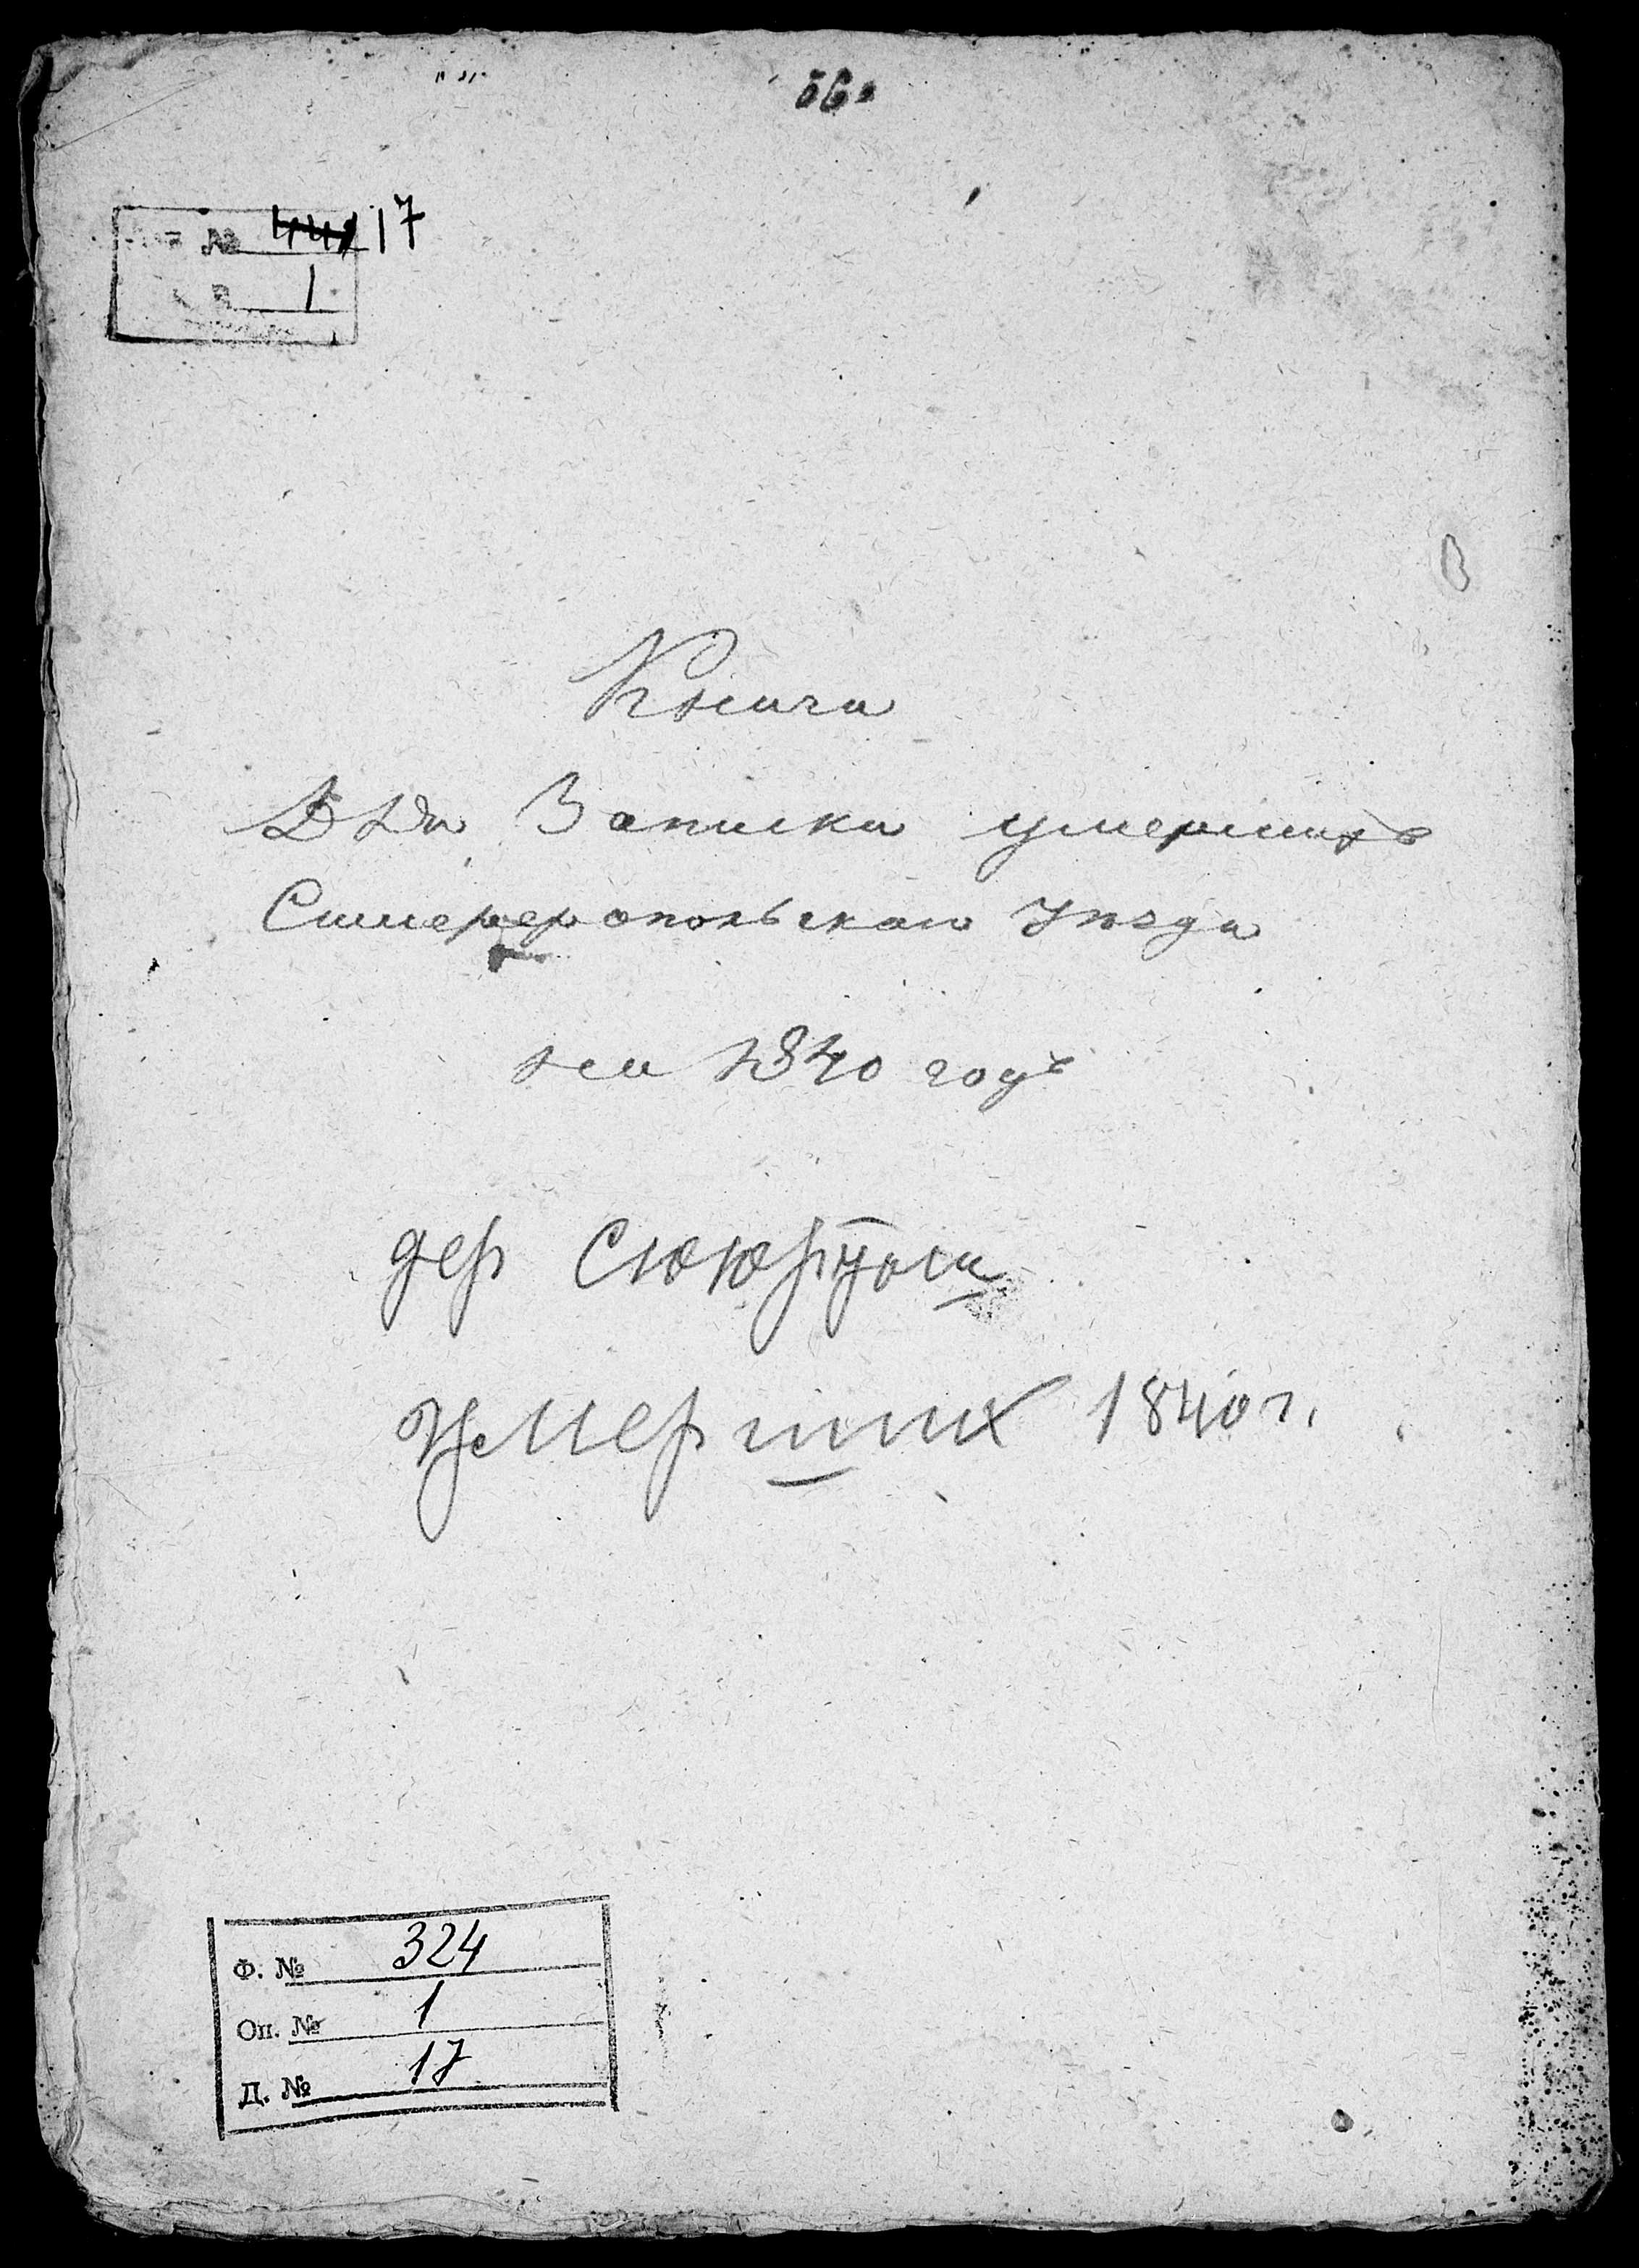 56.
№ 441 17
1
Книга
Для Записки умершихъ
Симферопольскаго уѣзда
на 1840 годъ
дер Сююрташ
умерших 1840 г.
Ф. № 324
Оп. № 1
Д. № 17